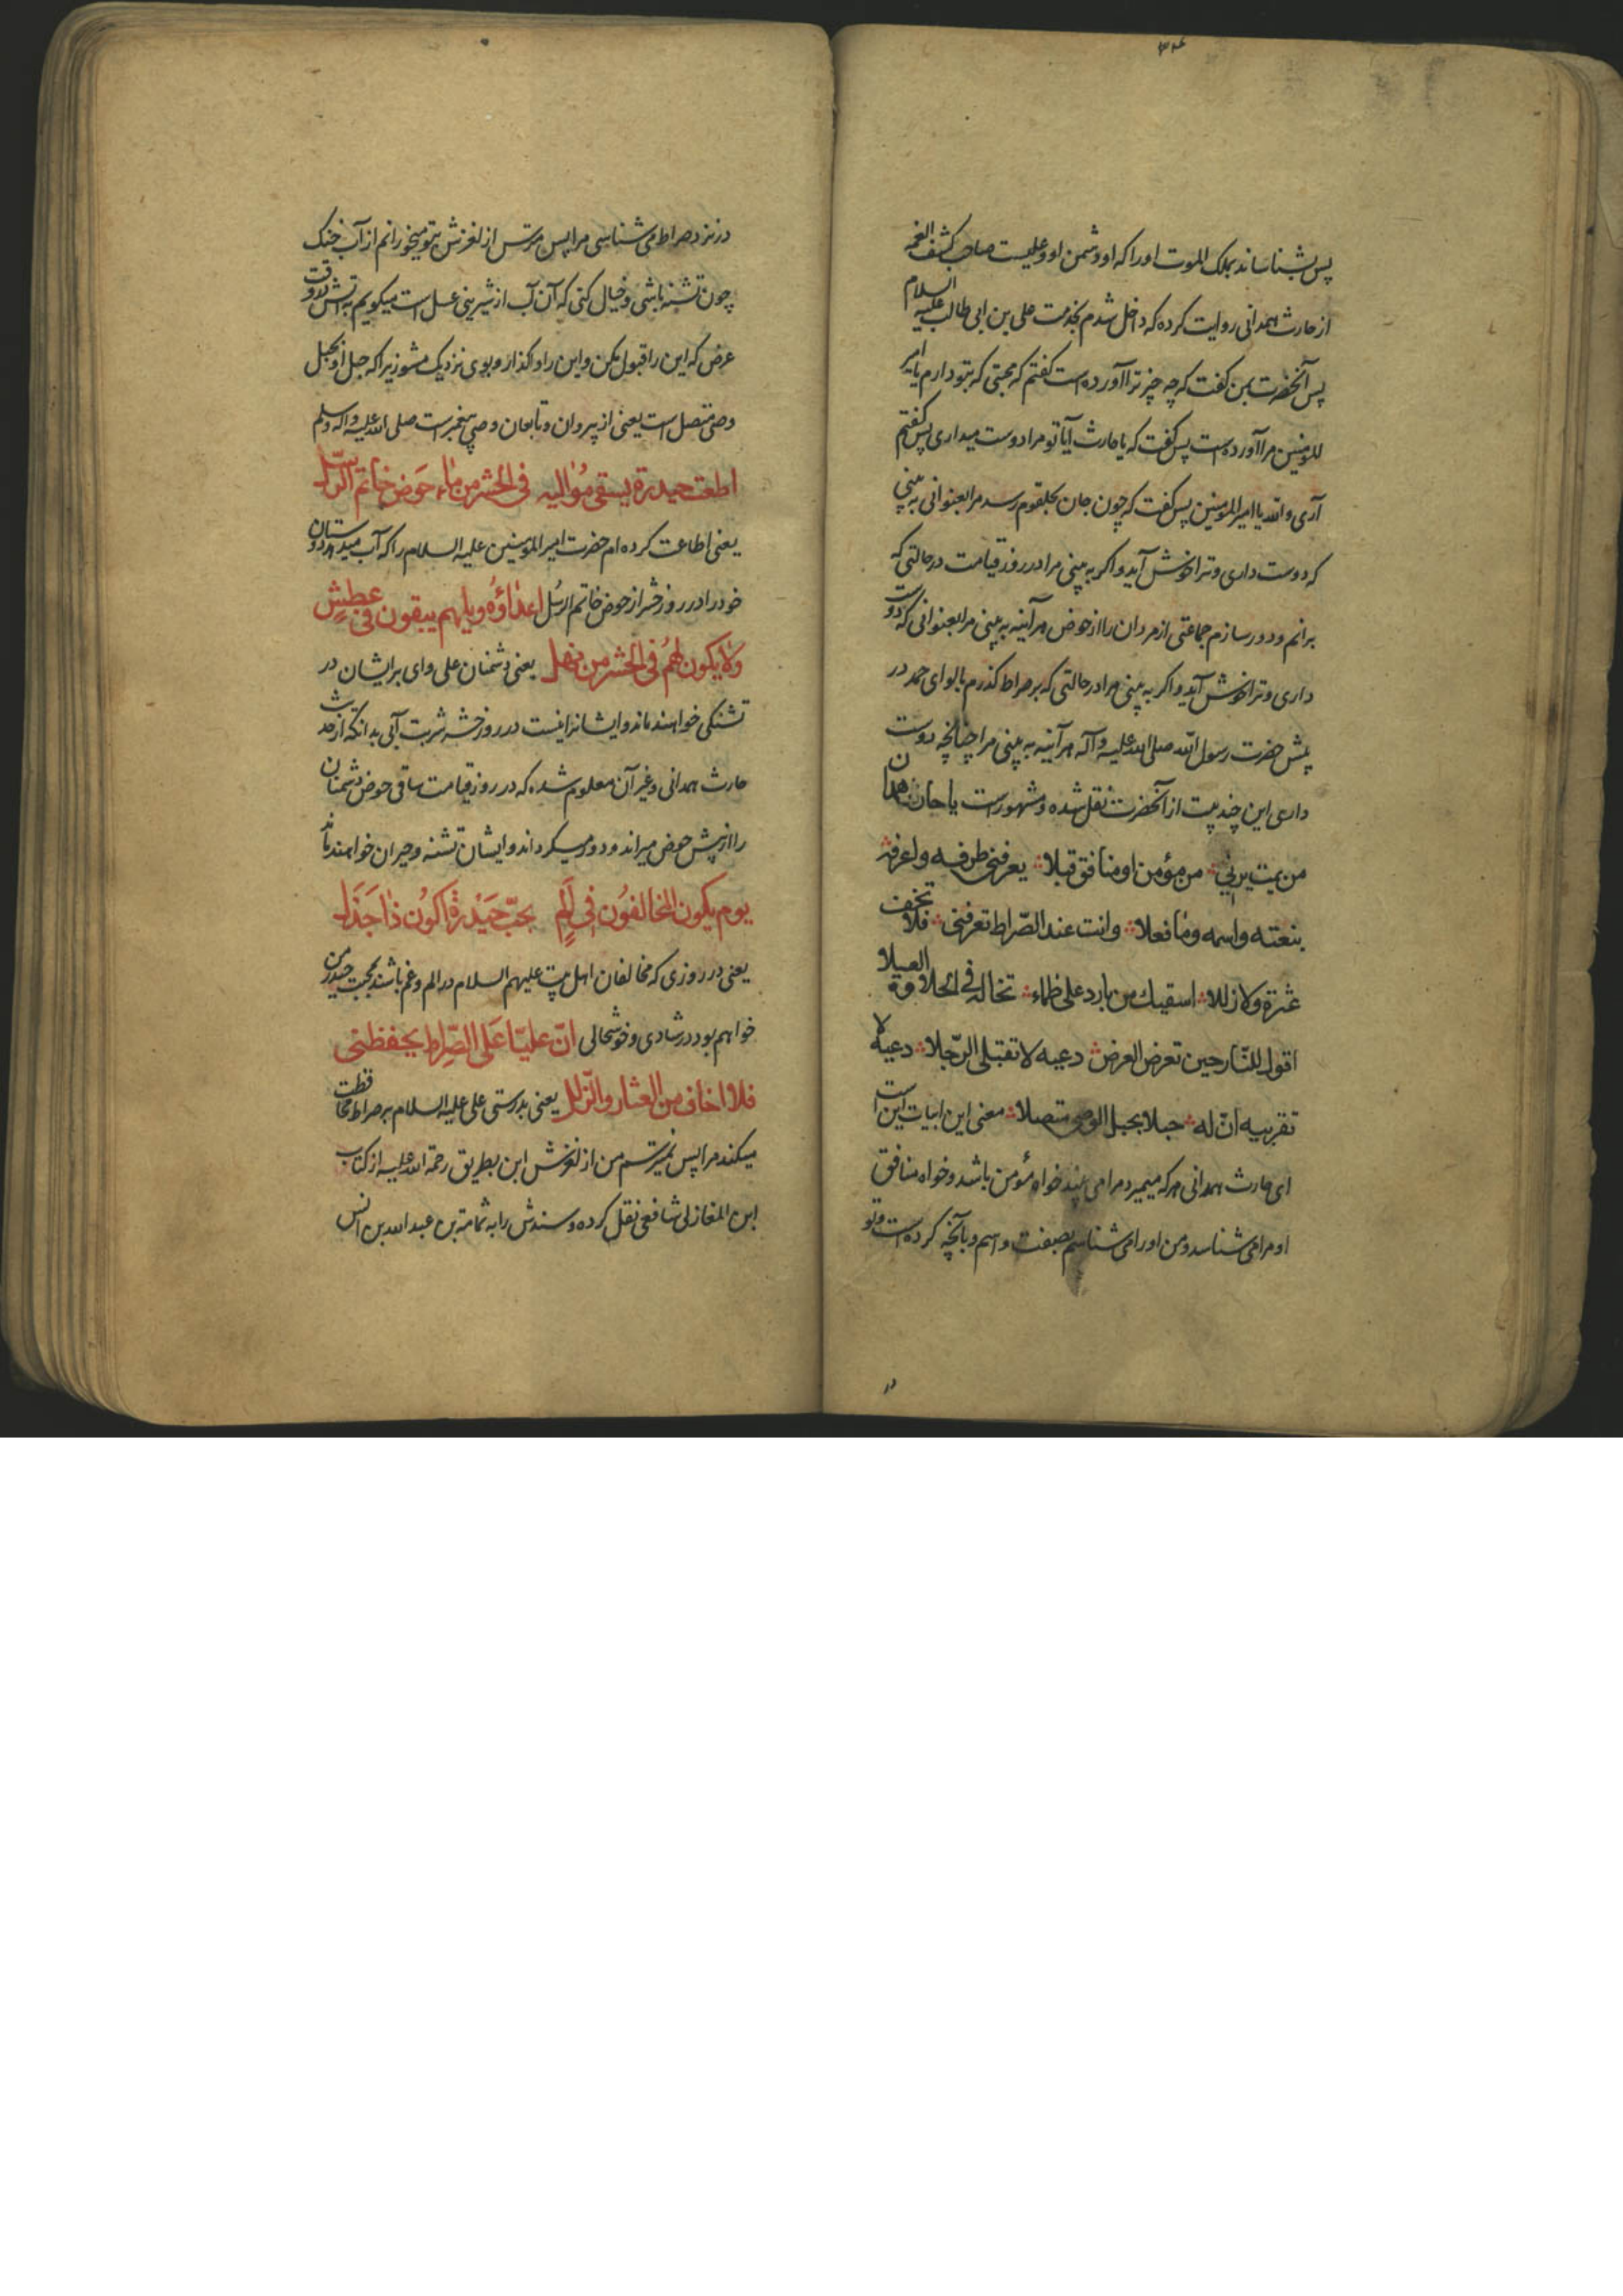 ۳۲۴
پس بشناساند بملک الموت اورا که او دشمن او و علیست صاحب کشف الغمه
از حارث همدانی روایت کرده که داخل شدم بخدمت علی بن ابی طالب علیه السلام
پس آنحضرت بمن کفت که چه چیز ترا آورده است کفتم که محبتی که بتو دارم یا امیر
المومنین مرا آورده است پس کفت که یا حارث آیا تو مرا دوست میداری پس کفتم
آری والله یا امیر المومنین پس کفت که چون جان بحلقوم رسد مرا بعنوانی به بینی
که دوست داری و ترا خوش آید و اکر به بینی مرا در روز قیامت در حالتی که
برانم و دور سازم جماعتی از مردان را از حوض هر آینه به بینی مرا بعنوانی که دوست
داری و ترا خوش آید و اکر به بینی مرا در حالتی که بر صراط کذرم با لوای حمد در
پیش حضرت رسول الله صلی الله علیه وآله هر آینه به بینی مرا چنانچه دوست
داری این چند بیت از آنحضرت نقل شده و مشهورست یا حار همدان
من یمت یرنی من مؤمن او منافق قبلا یعرفنی طرفه واعرفه
بنعته واسمه وما فعلا وانت عند الصّراط تعرفنی فلا تخف
عثرة ولا زللا اسقیك من بارد علی ظماء تخاله فی الحلاوة العسلا
اقول للنّار حین تعرض العرض دعیه لا تقبلی الرّجلا دعیه لا
تقربیه انّ له حبلا بحبل الوصی متصلا معنی این ابیات این است
ای حارث همدانی هر که میمیرد مرا می بیند خواه مؤمن باشد و خواه منافق
او مرا می شناسد و من اورا می شناسم بصفت و اسم و بآنچه کرده است و تو
در
در نزد صراط می شناسی مرا پس مترس از لغزش بتو میخورانم از آب خنک
چون تشنه باشی و خیال کنی که آن آب از شیرینی عسل است میکویم به آتش در وقت
عرض که این را قبول مکن و این را واکذار و بوی نزدیک مشو زیرا که حبل او بحبل
وصی متصل است یعنی از پیروان و تابعان وصی پیغمبر است صلی الله علیه واله وسلم
اطعت حیدرة یسقی مُوالیه فی الحشر من ماء حَوض خاتم الرّسل
یعنی اطاعت کرده ام حضرت امیر المومنین علیه السلام را که آب میدهد دوستان
خود را در روز حشر از حوض خاتم الرُسل اعداؤُه ویلهم یبقون فی عطشٍ
ولا یکون لهُم فی الحشر من نهل یعنی دشمنان علی وای بر ایشان در
تشنکی خواهند ماند و ایشانرا نیست در روز حشر شربت آبی بدانکه از حدیث
حارث همدانی و غیر آن معلوم شده که در روز قیامت ساقی حوض دشمنان
را از پیش حوض میراند و دور میکرداند و ایشان تشنه و حیران خواهند ماند
یوم یکون المخالفوُن فی اَلَمٍ بحبّ حَیْدرةَ اکوُن ذا جَذَل
یعنی در روزی که مخالفان اهل بیت علیهم السلام در الم و غم باشند بمحبت حیدر من
خواهم بود در شادی و خوشحالی انّ علیّا عَلی الصّراط یحفظنی
فلا اخاف من العثار والزّلل یعنی بدرستی علی علیه السلام بر صراط محافظت
میکند مرا پس نمیترسم من از لغزش ابن بطریق رحمة الله علیه از کتاب
ابن المغازلی شافعی نقل کرده و سندش را به ثمامة بن عبد الله بن انس